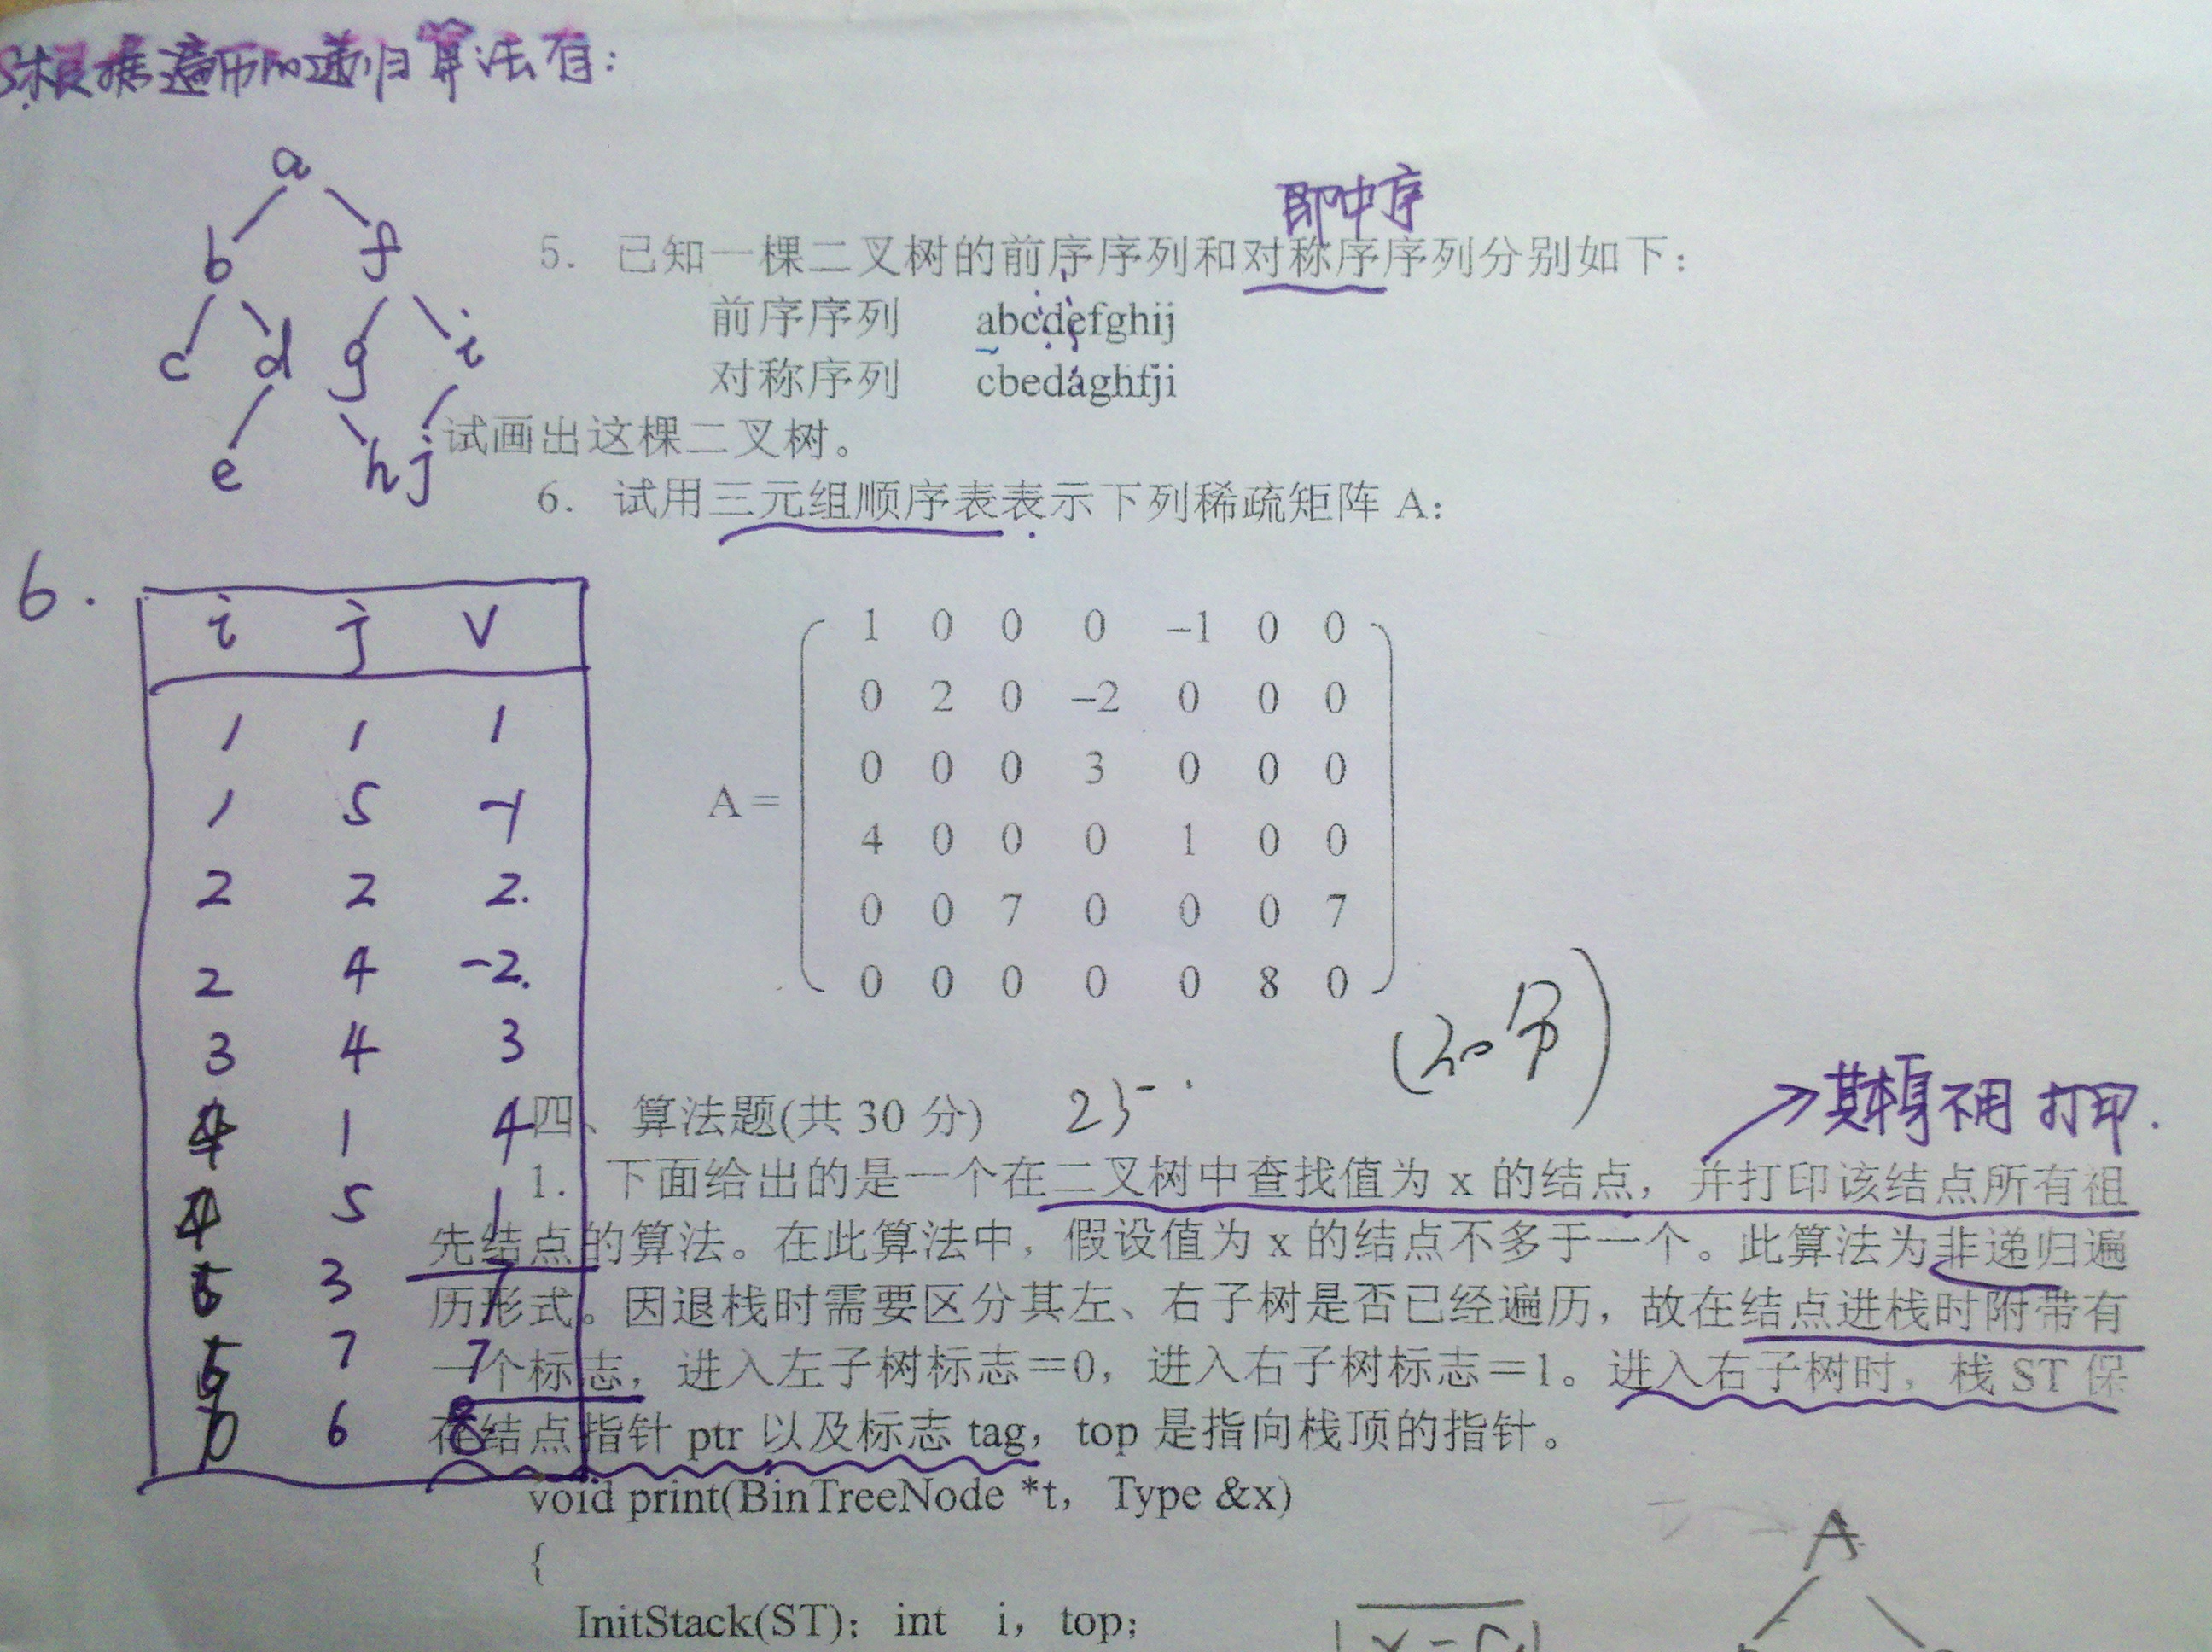 5.根据遍历的递归算法有:
a
b f
c d g i
e h j
即中序
5. 已知一棵二叉树的前序序列和对称序序列分别如下:
前序序列 abcdefghij
对称序列 cbedaghfji
试画出这棵二叉树。
6. 试用三元组顺序表表示下列稀疏矩阵 A:
6.
i j v
1 1 1
1 5 -1
2 2 2
2 4 -2
3 4 3
4 1 4
4 5 1
5 3 7
5 7 7
6 8
A =
1 0 0 0 -1 0 0
0 2 0 -2 0 0 0
0 0 0 3 0 0 0
4 0 0 0 1 0 0
0 0 7 0 0 0 7
0 0 0 0 0 8 0
(30分)
四、算法题(共 30 分)
25
其本身不用打印.
1. 下面给出的是一个在二叉树中查找值为 x 的结点,并打印该结点所有祖
先结点的算法。在此算法中,假设值为 x 的结点不多于一个。此算法为非递归遍
历形式。因退栈时需要区分其左、右子树是否已经遍历,故在结点进栈时附带有
一个标志,进入左子树标志=0,进入右子树标志=1。进入右子树时,栈 ST 保
存结点指针 ptr 以及标志 tag,top 是指向栈顶的指针。
void print(BinTreeNode *t, Type &x)
{
InitStack(ST); int i, top;
A